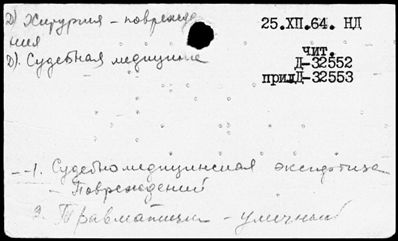 2) Хирургия - поврежде
ния
2). Судебная медицина
25.XII.64. НД
чит.
Д-32552
прилД-32553
1. Судебномедицинская экспертиза
- Повреждений
3. Травматизм - уличный